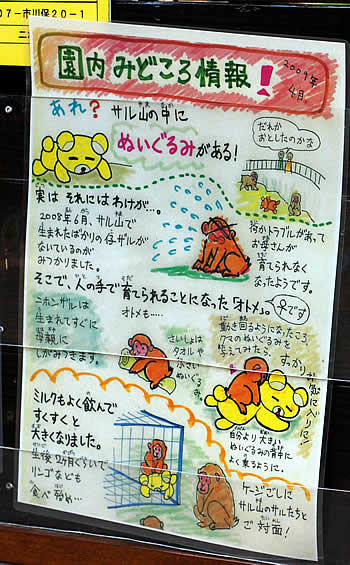 07-市川保20-1
園内みどころ情報!
2009年
4月
あれ? サル山の中に
ぬいぐるみがある!
だれか
おとしたのかな
実は それにはわけが…。
2008年6月、サル山で
生まれたばかりの仔ザルが
ないているのが
みつかりました。
何かトラブルがあって
お母さんが
育てられなく
なったようです。
そこで、人の手で育てられることになった「オトメ」。
♀です
ニホンザルは
生まれてすぐに
母親に
しがみつきます。
オトメも……
さいしょは
タオルや
小さい
ぬいぐるみ
動き回るようになったころ、
クマのぬいぐるみを
与えてみたら、
すっかりお気に入りに!
自分より大きい
ぬいぐるみの背中に
よく乗るように。
ミルクもよく飲んで
すくすくと
大きくなりました。
生後2ヶ月ぐらいで
リンゴなども
食べ始め…
ケージごしに
サル山のサルたちと
ご対面!